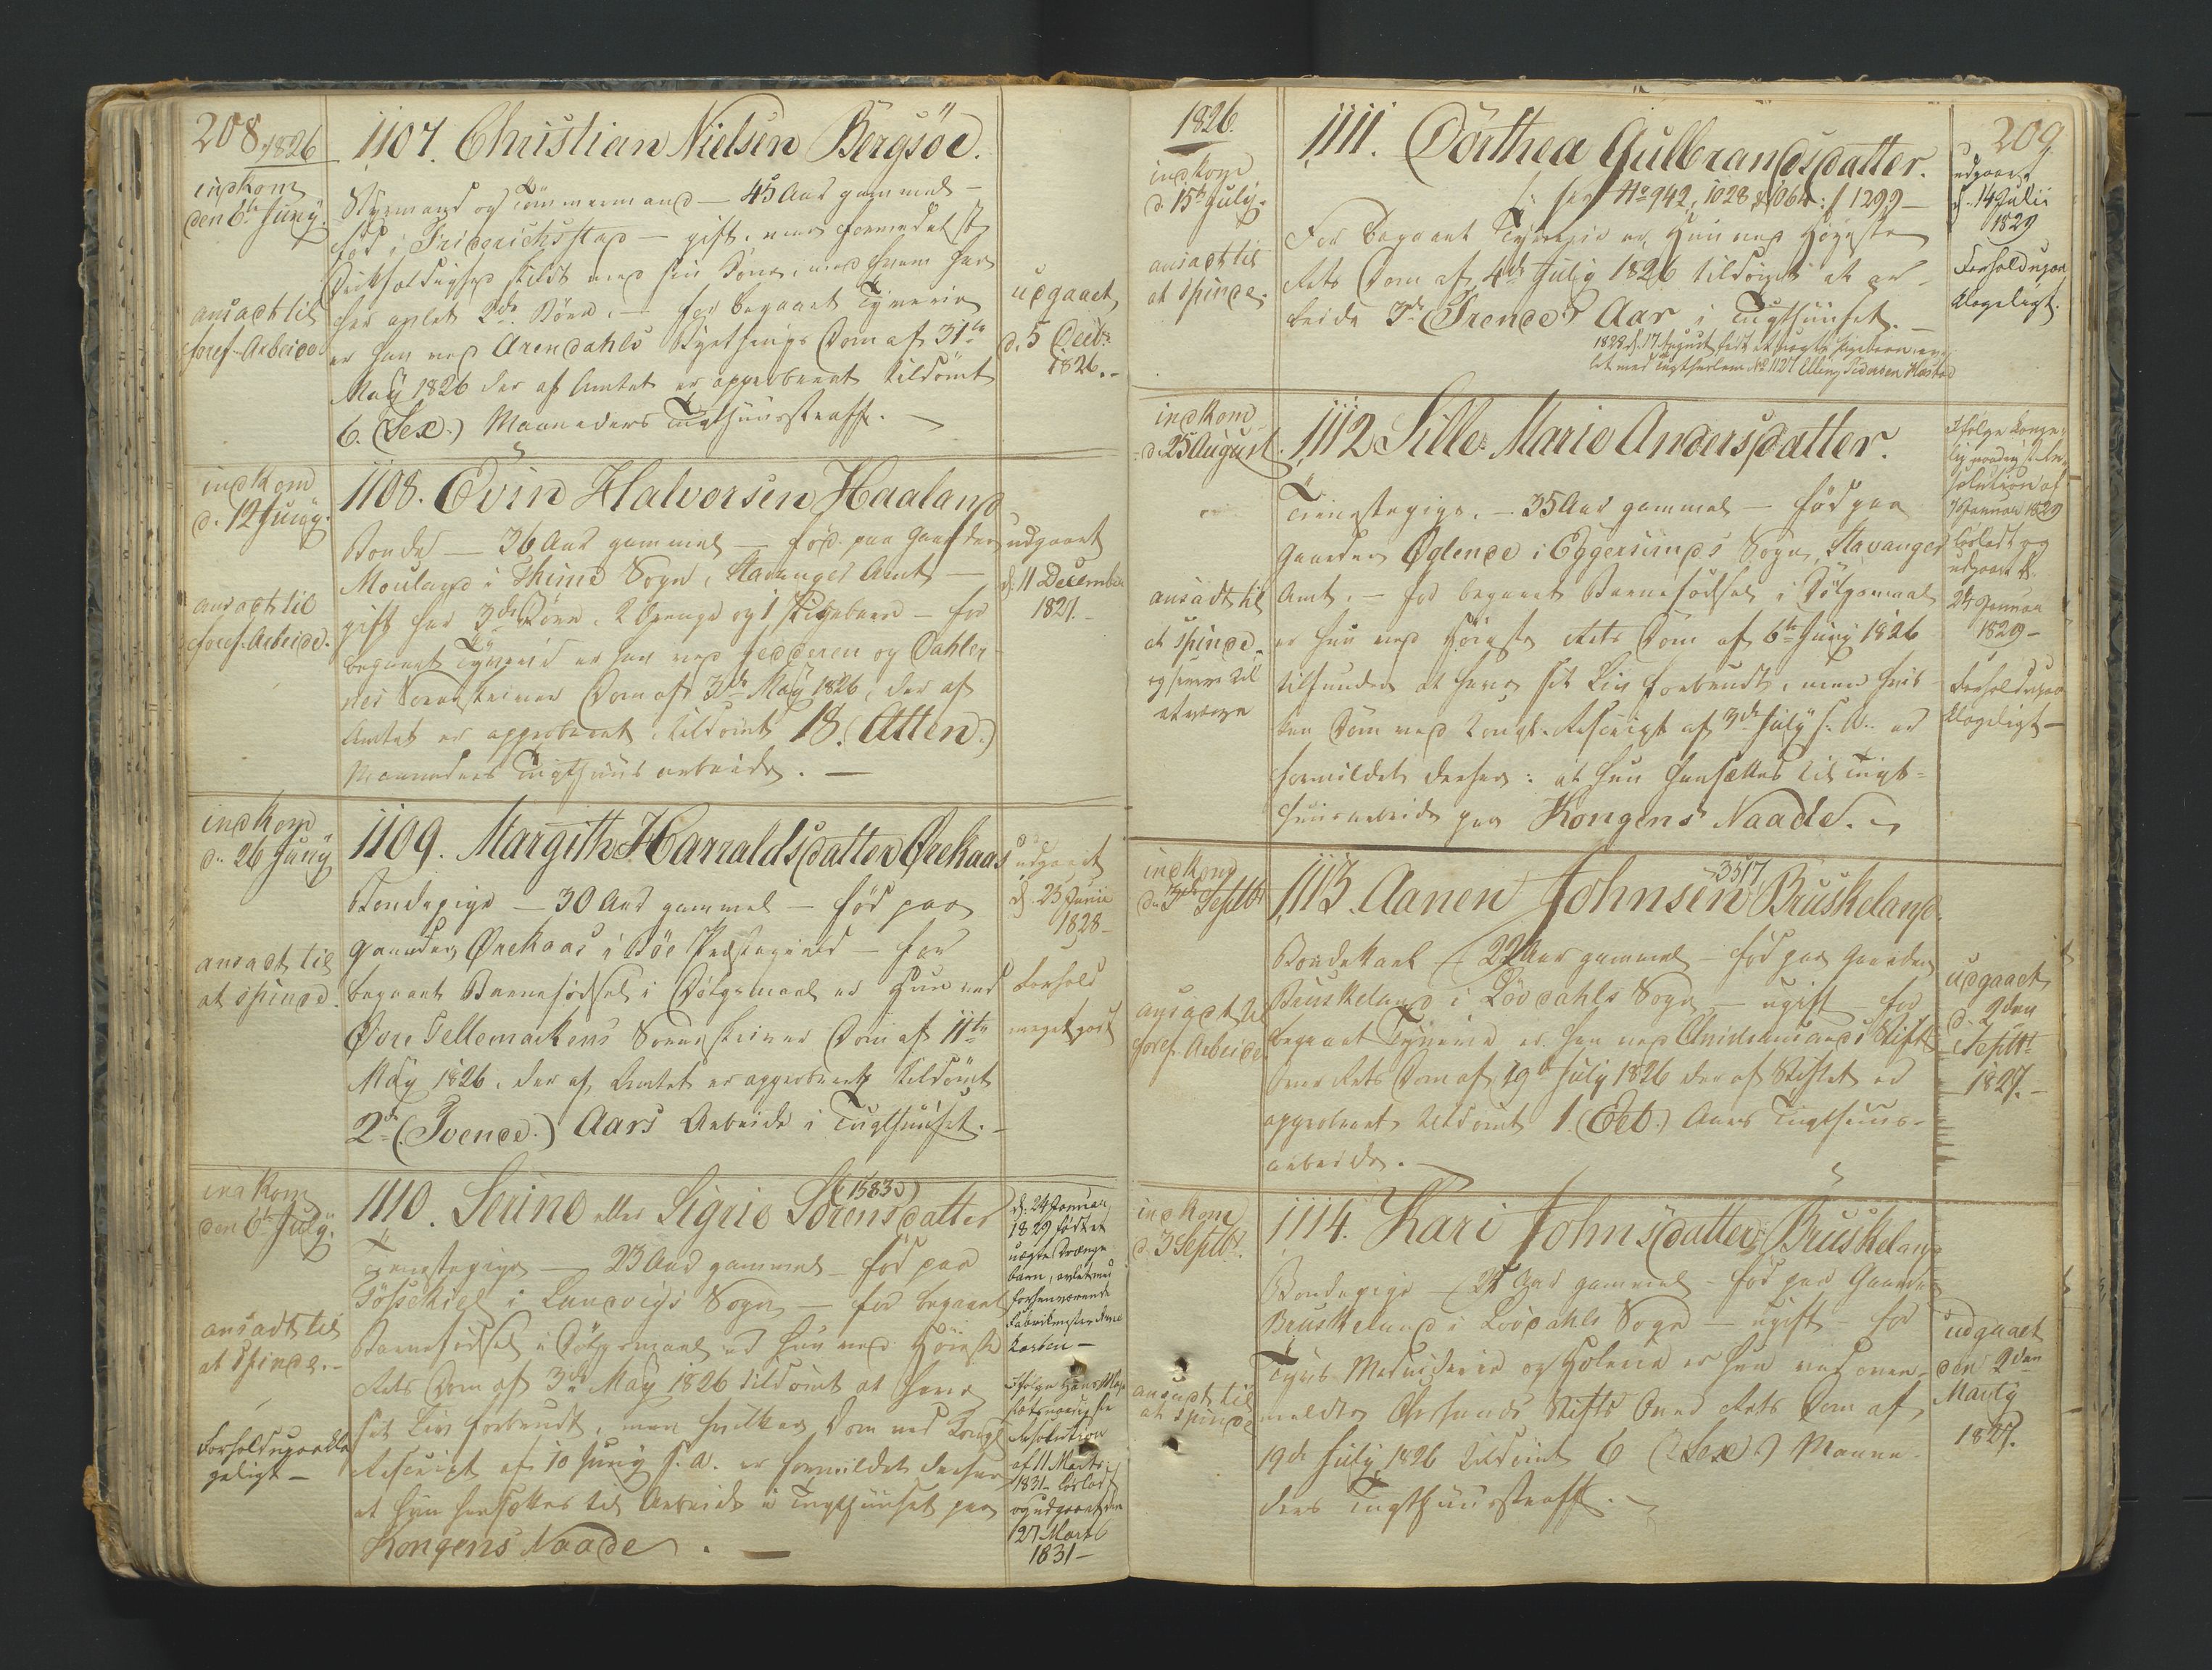 208.
1826
indkom
den 6te Juny.
ansadt til
foref. Arbeide
1107. Christian Nielsen Bergsöe.
Styrmand og Tømmermand — 45 Aar gammel —
föd i Friderichsstad — gift, men formedelst
skildt med sin Kone, med hvem har
har avlet 2de Börn, — for begaaet Tyverie
er han ved Arendahls Byethings Dom af 31te
May 1826 der af Amtet er approberet tildömt
6. (Sex.) Maaneders Tugthuusstraff. —
udgaaet
d. 5 Decbr
1826. —
indkom
d. 12 Juny.
ansadt til
foref. Arbeide.
1108. Evin Halvorsen Haaland
Bonde — 36 Aar gammel — föd paa Gaarden
Mouland i Thime Sogn, Stavanger Amt —
gift har 3de Börn, 2 Drenge og 1 Pigebarn — for
begaaet Tyverie er han ved Jedderen og Dahler-
nes Sorenskriver Dom af 3de May 1826, der af
Amtet er approberet, tildömt 18. (Atten.)
Maaneders Tugthuusarbeide. —
udgaaet
d. 11 December
1827. —
indkom
d. 26 Juny
ansadt til
at spinde.
1109. Margith Harraldsdatter Ørekaas
Bondepige — 30 Aar gammel — föd paa
Gaarden Ørekaas i Böe Præstegield — for
begaaet Barnefödsel i Dölgsmaal er Hun ved
Øvre Tellemarkens Sorenskriver Dom af 11te
May 1826, der af Amtet er approberet tildömt
2de (Tvende.) Aars Arbeide i Tugthuuset. —
udgaaet
d. 23 Junii
1828 —
Forhold
meget godt
indkom
den 6te July.
ansadt til
at spinde. —
Forhold upaakla
geligt —
1110. Serine eller Sigrie Sörensdatter
(1583)
Tienestepige — 23 Aar gammel — föd paa
i Landvigs Sogn — for begaaet
Barnefödsel i Dölgsmaal er hun ved Höieste
Rets Dom af 3de May 1826 tildömt at have
sit Liv forbrudt, men hvilken Dom ved Kongl.
Rescript af 10 Juny s. A. er formildet derhen
at hun hensættes til Arbeide i Tugthuuset paa
Kongens Naade. —
d. 24 Januar
1829 födt et
uægte Drenge
barn, avlet med
forhenværende
Fabrikmester
Karsten —
Ifölge Hans Maje
stæts naadigste
Resolution
af 11 Marts
1831 — lösladt
og udgaaet den
27 Marts
1831 —
209.
1826.
indkom
d. 15de July.
ansadt til
at spinde.
1111. Dorthea Gulbrandsdatter.
/: see No 942, 1028 & 1064 :/ 1299 —
For begaaet Tyverie er Hun ved Höyeste
Rets Dom af 4de July 1826 tildömt at ar-
beide 3de (Trende) Aar i Tugthuuset. —
1828 d. 17 August födt et uægte Pigebarn av-
let med Tugthuslem No 1127 Elling Pedersen Kaasbøe
udgaaet
d. 14 Julii
1829
Forhold upaa
klageligt.
indkom
d. 25 August.
ansadt til
at spinde.
og senere til
at
1112 Sille Marie Andersdatter.
Tienestepige. — 35 Aar gammel — föd paa
Gaarden Øglende i Eggersunds Sogn, Stavanger
Amt. — for begaaet Barnefödsel i Dölgsmaal
er hun ved Höieste Rets Dom af 6te Juny 1826
tilfunden at have sit Liv forbrudt, men hvil-
ken Dom ved Kongl. Rescript af 3de July s. A. er
formildet derhen: at hun hensættes til Tugt-
huusarbeide paa Kongens Naade. —
Ifölge Konge-
lig naadigste Re-
solution af
Januar 1829
lösladt og
udgaaet d.
24 Januar
1829 —
Forhold upaa
klageligt —
indkom
d. 3de Septbr
ansadt til
foref. Arbeide.
1113. Aanen Johnsen Bruskeland.
3517
Bondekarl — 22 Aar gammel — föd paa Gaarden
Bruskeland i Lövdahls Sogn, — ugift — for
begaaet Tyverie er han ved Christiansands Stifts
Over Rets Dom af 19de July 1826 der af Stiftet er
approberet, tildömt 1. (Eet.) Aars Tugthuus-
arbeide. —
udgaaet
d. 2den
Septbr
1827. —
indkom
d. 3 Septbr.
ansadt til
at spinde
1114. Kari Johnsdatter Bruskeland
Bondepige — 24 Aar gammel — föd paa Gaarden
Bruskeland i Lövdahls Sogn — ugift — for
Tyvs Medviderie og Hölerie er hun ved oven-
meldte Chrsands Stifts Over Rets Dom af
19de July 1826 tildömt 6 (Sex.) Maane-
ders Tugthuusstraff. —
udgaaet
den 2den
Marty
1827.